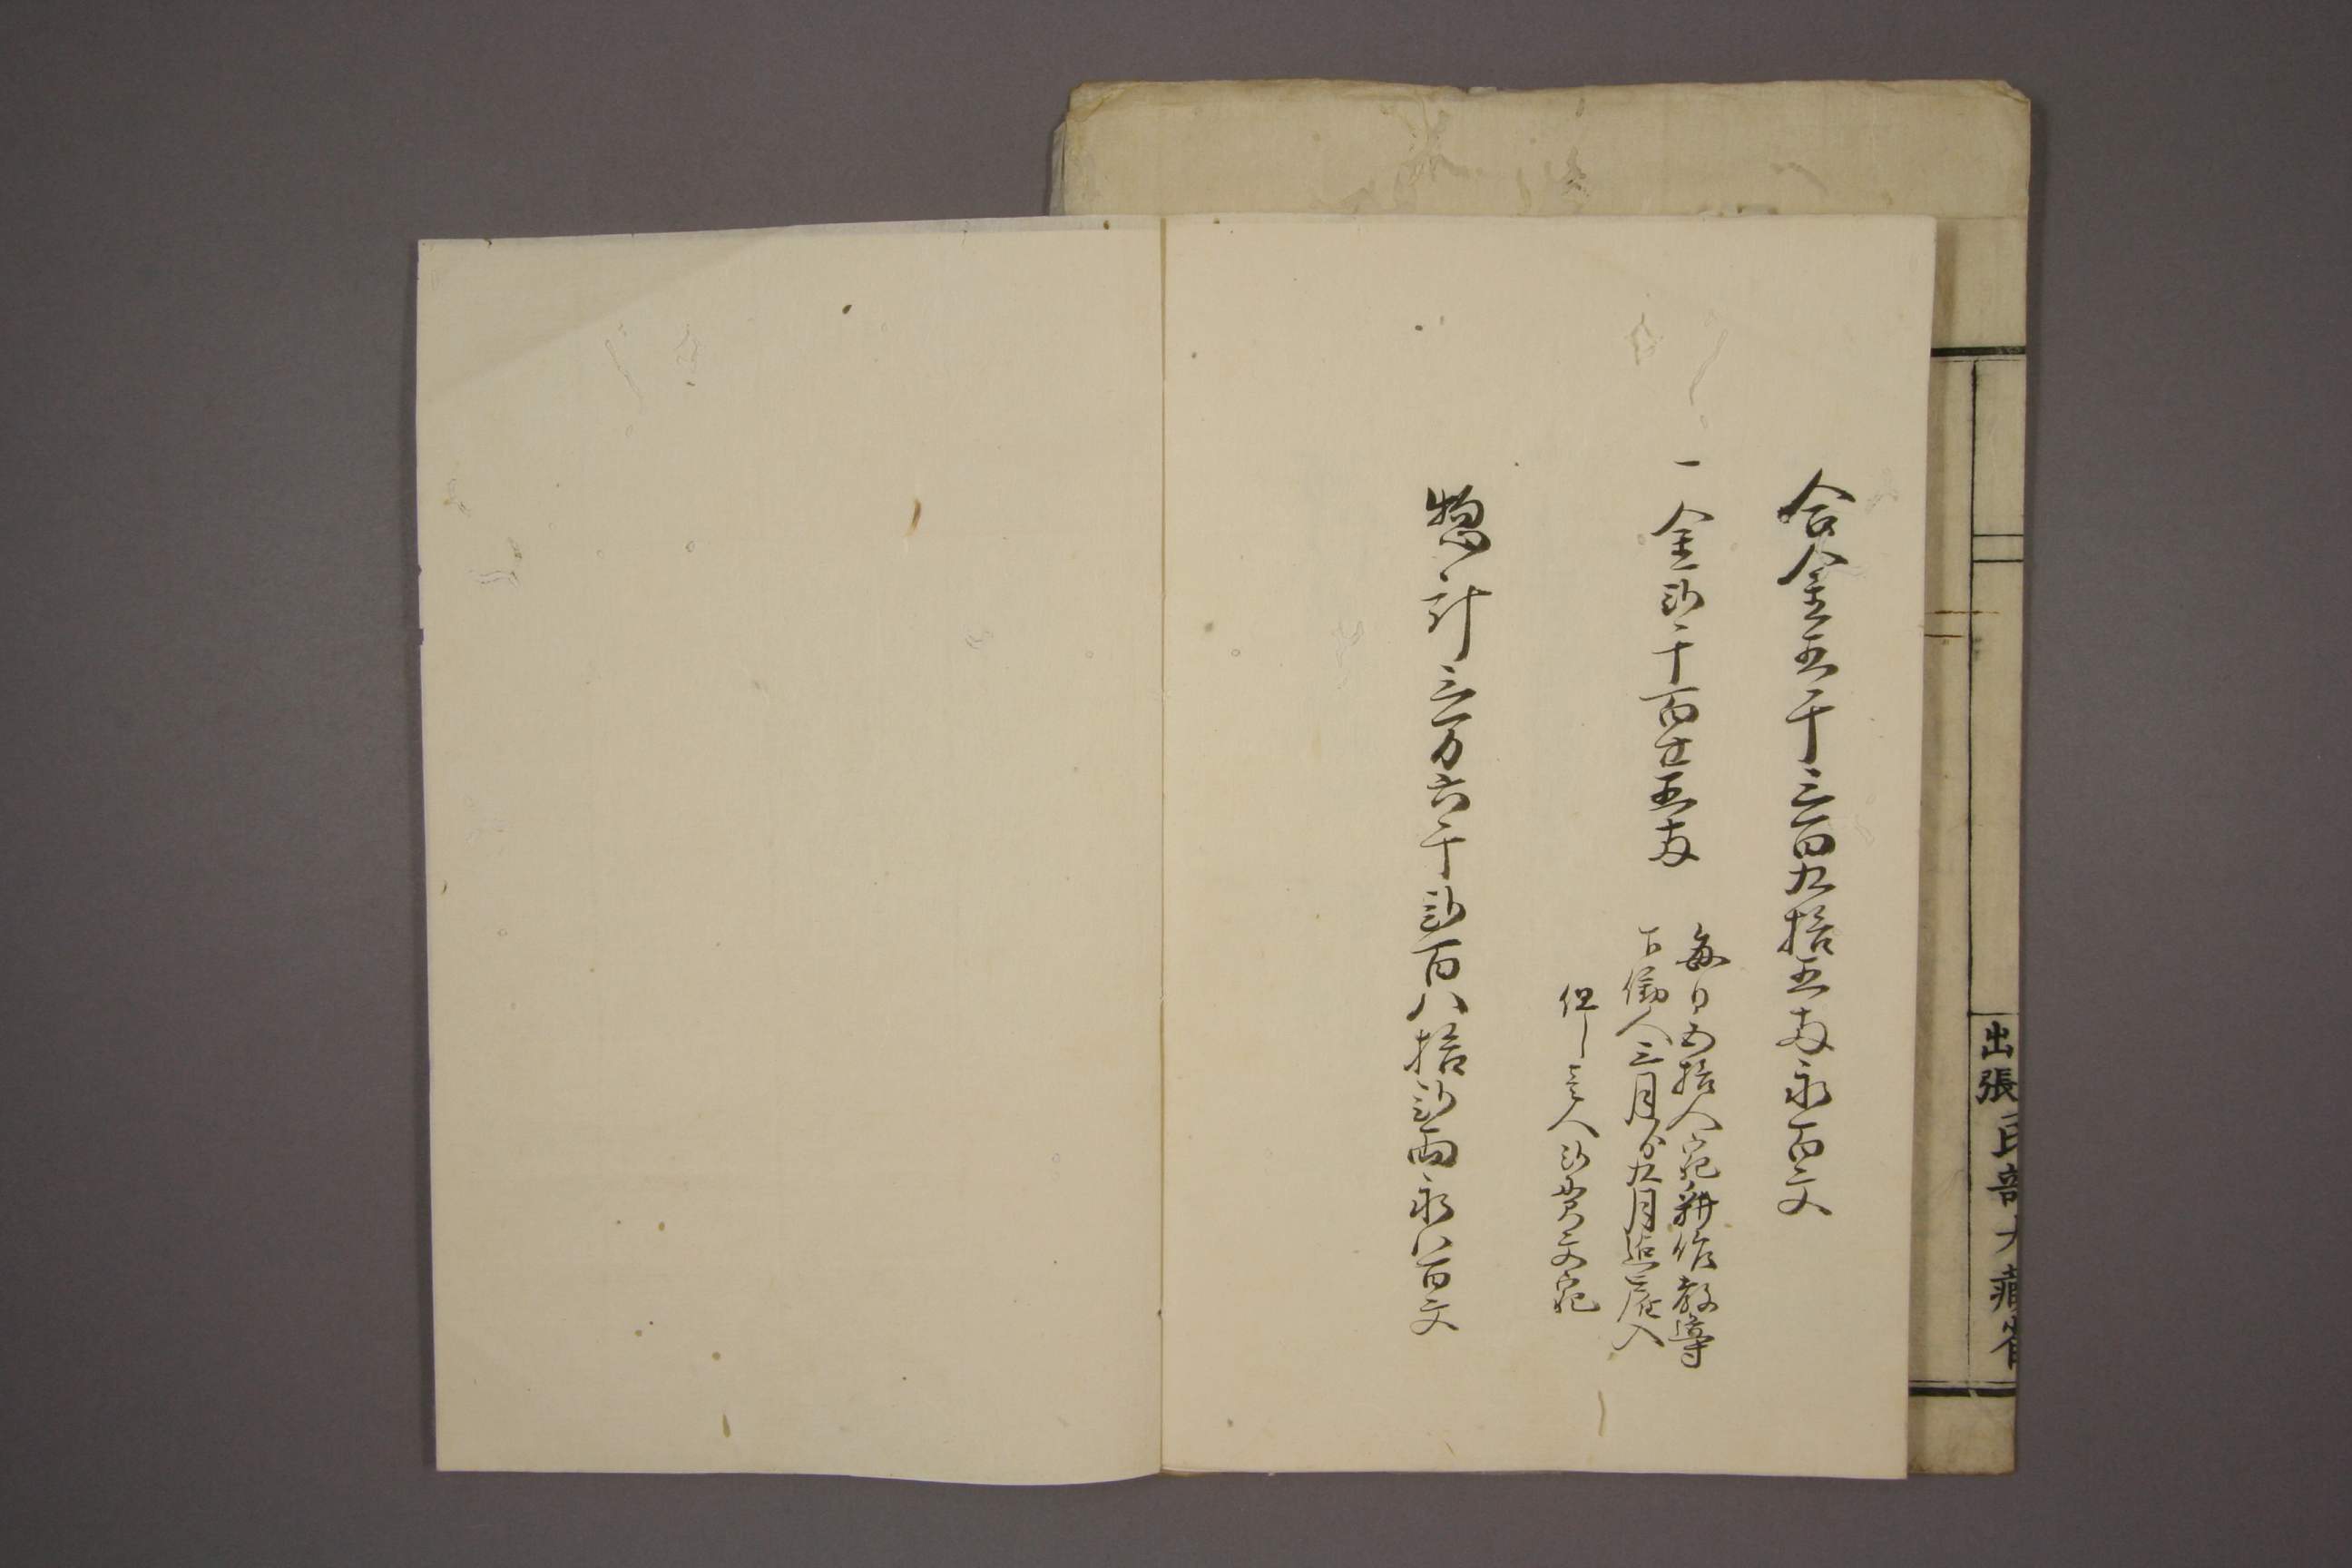 合金五千三百九拾五両永百文
一金弐千百廿五両
毎日五拾人宛耕作教導
下働人三月ゟ九月迄雇入
但し壱人弐貫文宛
惣計三万六千弐百八拾弐両永八百文
出張民部大蔵省